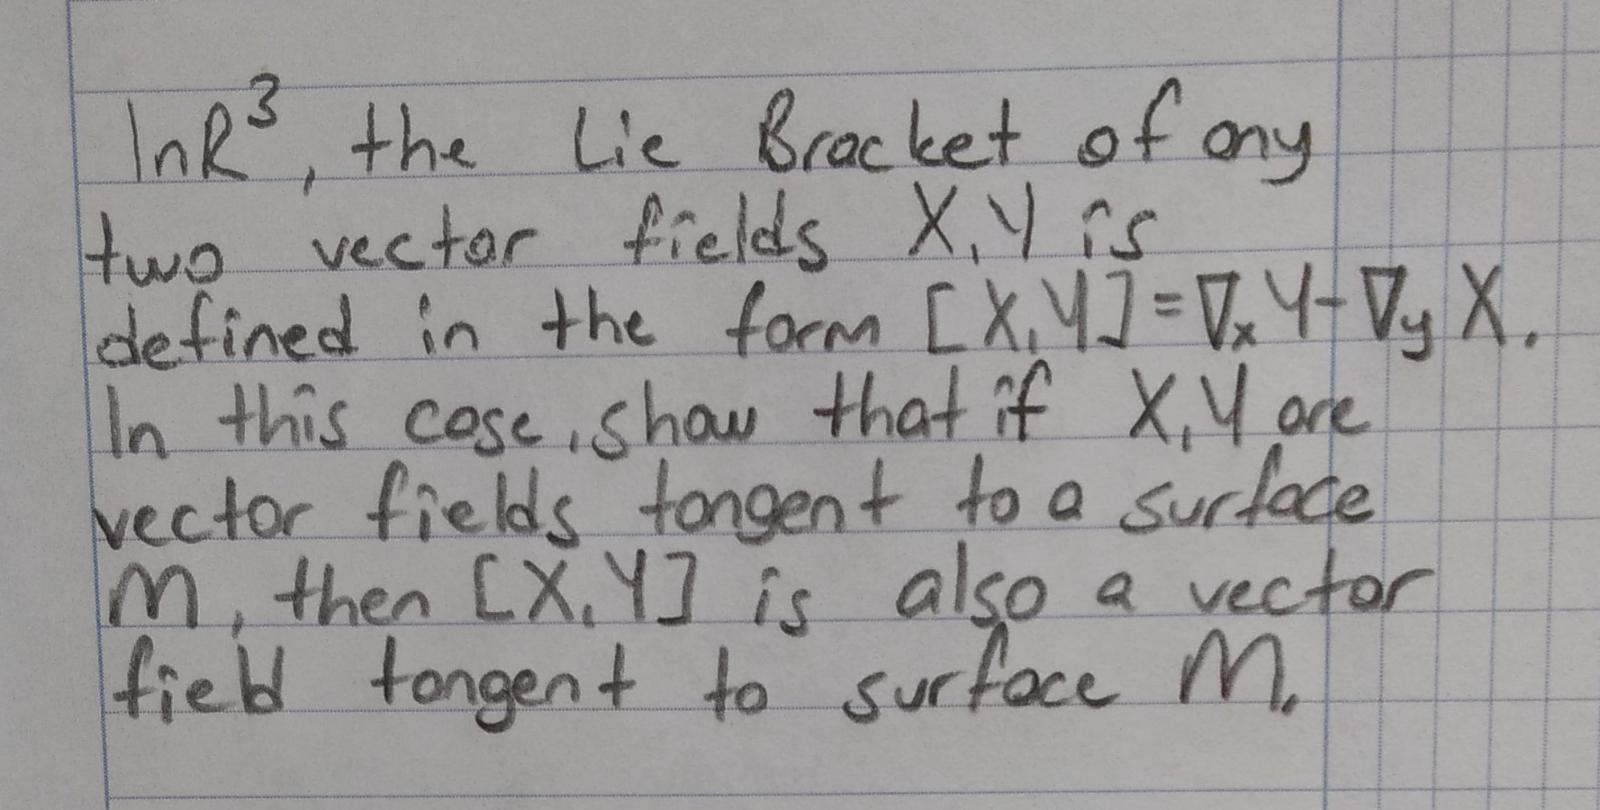 In R³, the Lie Bracket of any
two vector fields X, Y is
defined in the form [X, Y] = ∇ₓ Y - ∇y X.
In this case, show that if X, Y are
vector fields tangent to a surface
M, then [X, Y] is also a vector
field tangent to surface M.